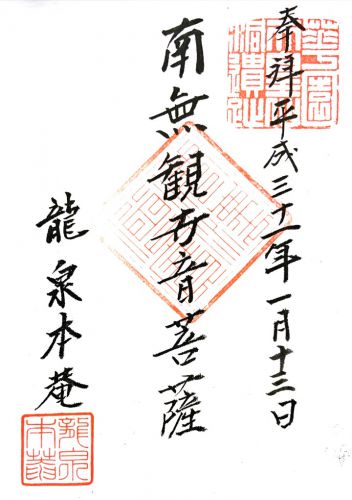 奉拝平成三十一年一月十三日
南無観世音菩薩
龍泉本菴
龍泉
本菴